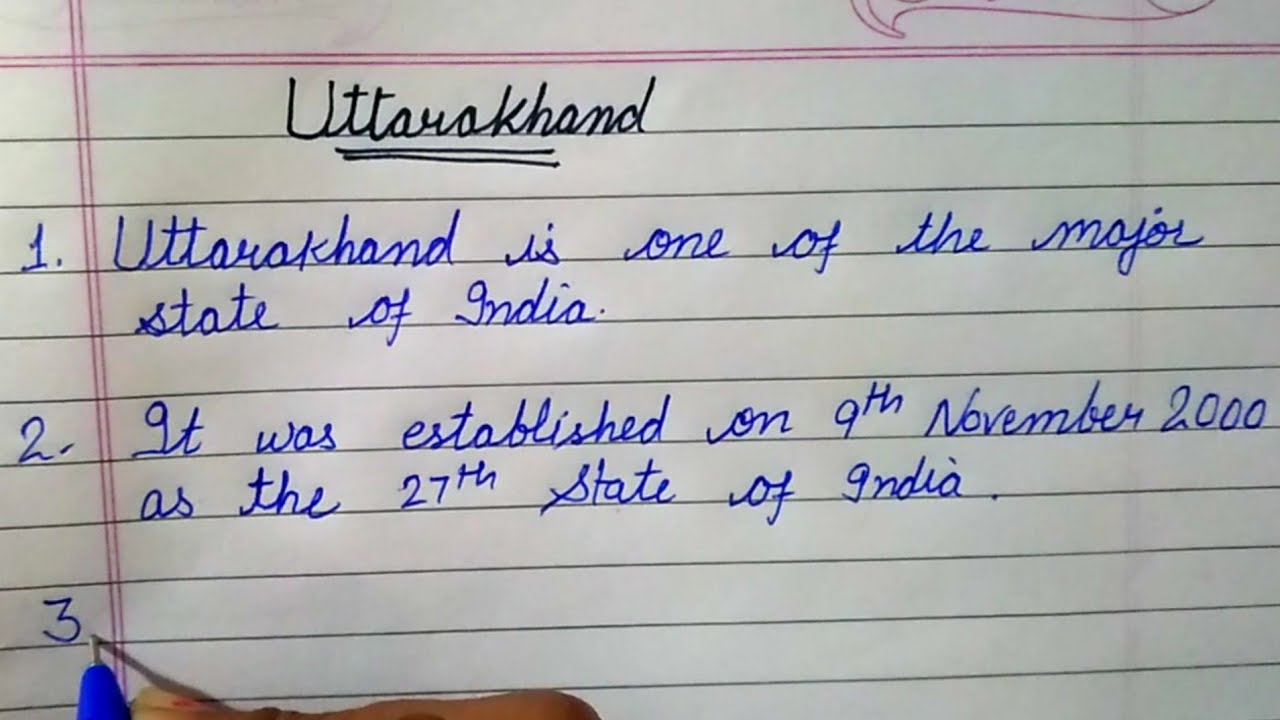 Uttarakhand
1. Uttarakhand is one of the major
state of India.
2. It was established on 9th November 2000
as the 27th State of India.
3